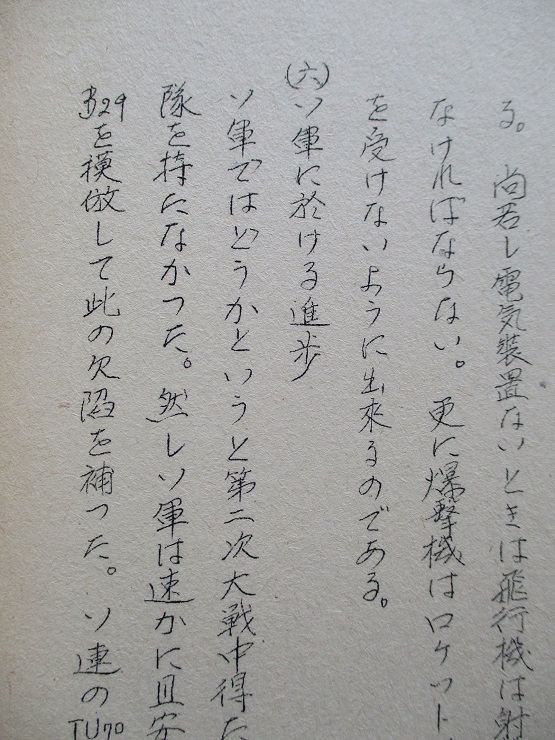 る。尚若し電気装置ないときは飛行機は射
なければならない。更に爆撃機はロケット
を受けないように出来るのである。
(六)ソ軍に於ける進歩
ソ軍ではどうかというと第二次大戦中得た
隊を持たなかつた。然しソ軍は速かに且安
B29を模倣して此の欠陥を補つた。ソ連の
TU70